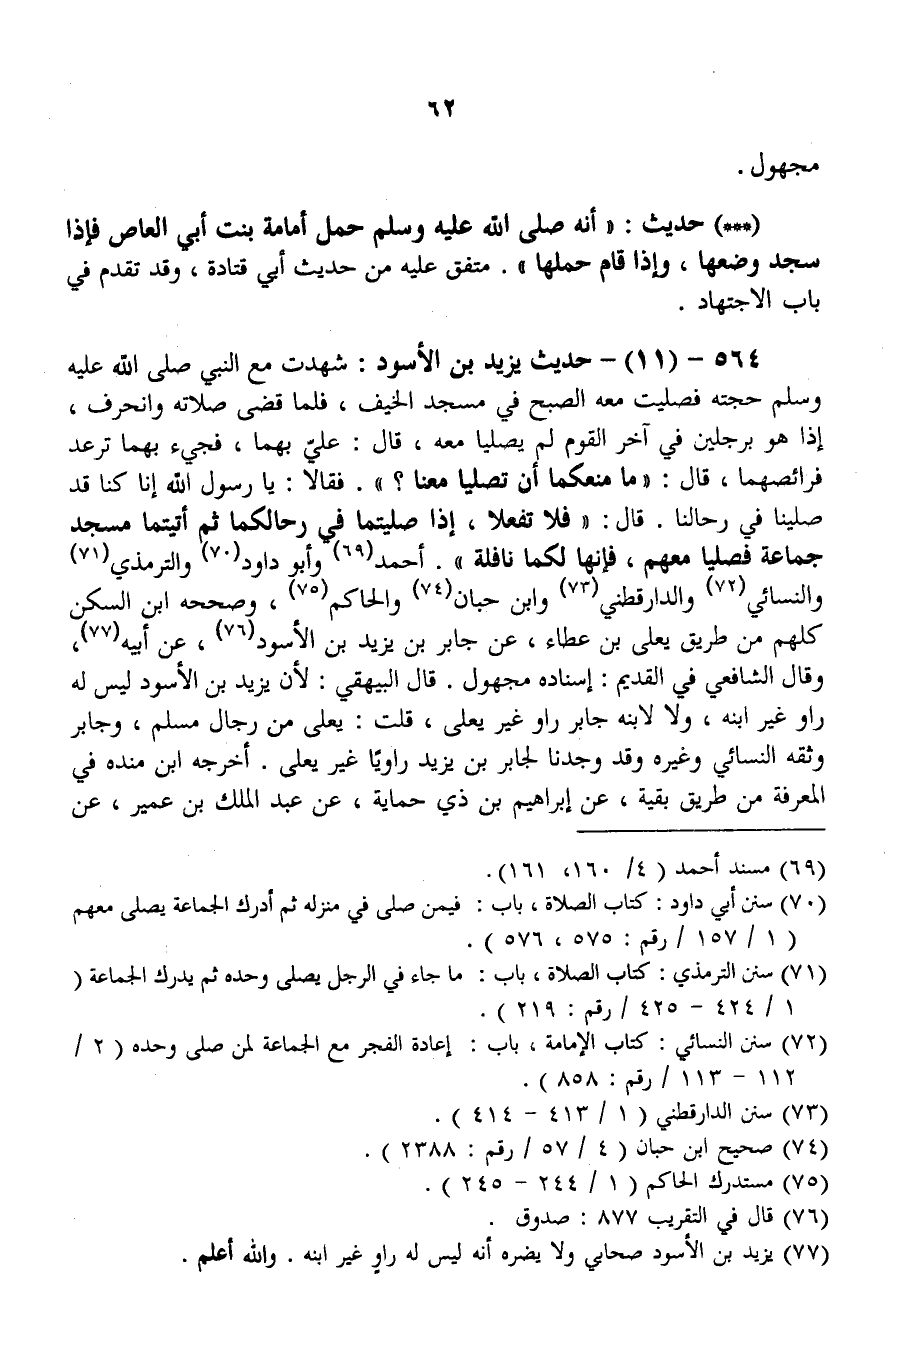 ٦٢
مجهول .
(***) حديث : « أنه صلى الله عليه وسلم حمل أمامة بنت أبي العاص فإذا
سجد وضعها ، وإذا قام حملها » . متفق عليه من حديث أبي قتادة ، وقد تقدم في
باب الاجتهاد .
٥٦٤ - (١١) - حديث يزيد بن الأسود : شهدت مع النبي صلى الله عليه
وسلم حجته فصليت معه الصبح في مسجد الخيف ، فلما قضى صلاته وانحرف ،
إذا هو برجلين في آخر القوم لم يصليا معه ، قال : عليّ بهما ، فجيء بهما ترعد
فرائصهما ، قال : « ما منعكما أن تصليا معنا ؟ » . فقالا : يا رسول الله إنا كنا قد
صلينا في رحالنا . قال : « فلا تفعلا ، إذا صليتما في رحالكما ثم أتيتما مسجد
جماعة فصليا معهم ، فإنها لكما نافلة » . أحمد(٦٩) وأبو داود(٧٠) والترمذي(٧١)
والنسائي(٧٢) والدارقطني(٧٣) وابن حبان(٧٤) والحاكم(٧٥) ، وصححه ابن السكن
كلهم من طريق يعلى بن عطاء ، عن جابر بن يزيد بن الأسود(٧٦) ، عن أبيه(٧٧)،
وقال الشافعي في القديم : إسناده مجهول . قال البيهقي : لأن يزيد بن الأسود ليس له
راو غير ابنه ، ولا لابنه جابر راو غير يعلى ، قلت : يعلى من رجال مسلم ، وجابر
وثقه النسائي وغيره وقد وجدنا لجابر بن يزيد راويًا غير يعلى . أخرجه ابن منده في
المعرفة من طريق بقية ، عن إبراهيم بن ذي حماية ، عن عبد الملك بن عمير ، عن
(٦٩) مسند أحمد ( ٤/ ١٦٠، ١٦١).
(٧٠) سنن أبي داود : كتاب الصلاة ، باب : فيمن صلى في منزله ثم أدرك الجماعة يصلى معهم
( ١ / ١٥٧ / رقم : ٥٧٥ ، ٥٧٦ ) .
(٧١) سنن الترمذي : كتاب الصلاة ، باب : ما جاء في الرجل يصلى وحده ثم يدرك الجماعة (
١ / ٤٢٤ - ٤٢٥ / رقم : ٢١٩ ) .
(٧٢) سنن النسائي : كتاب الإمامة ، باب : إعادة الفجر مع الجماعة لمن صلى وحده ( ٢ /
١١٢ - ١١٣ / رقم : ٨٥٨ ) .
(٧٣) سنن الدارقطني ( ١ / ٤١٣ - ٤١٤ ) .
(٧٤) صحيح ابن حبان ( ٤ / ٥٧ / رقم : ٢٣٨٨ ) .
(٧٥) مستدرك الحاكم ( ١ / ٢٤٤ - ٢٤٥ ) .
(٧٦) قال في التقريب ٨٧٧ : صدوق .
(٧٧) يزيد بن الأسود صحابي ولا يضره أنه ليس له راوٍ غير ابنه . والله أعلم .